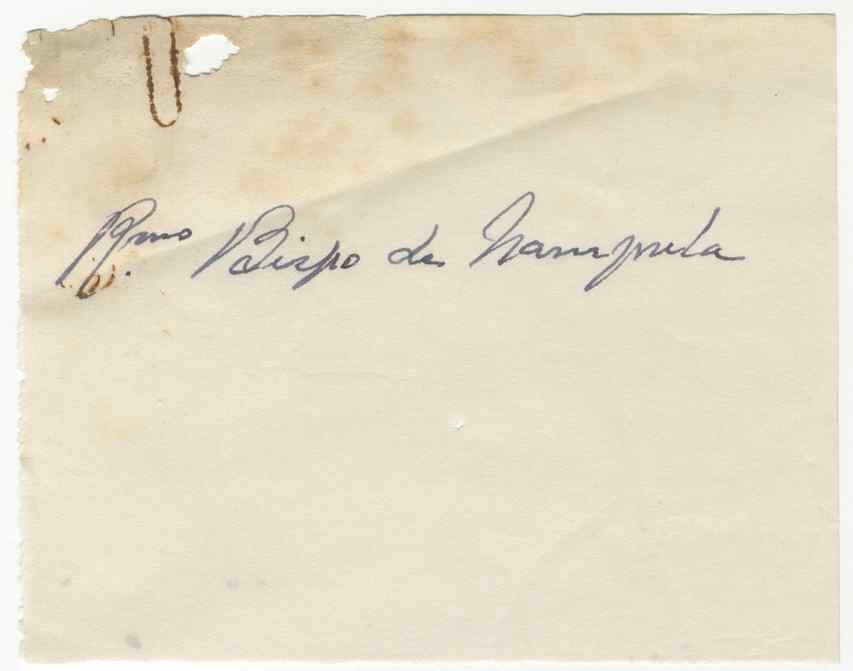 Rmo. Bispo de Nampula